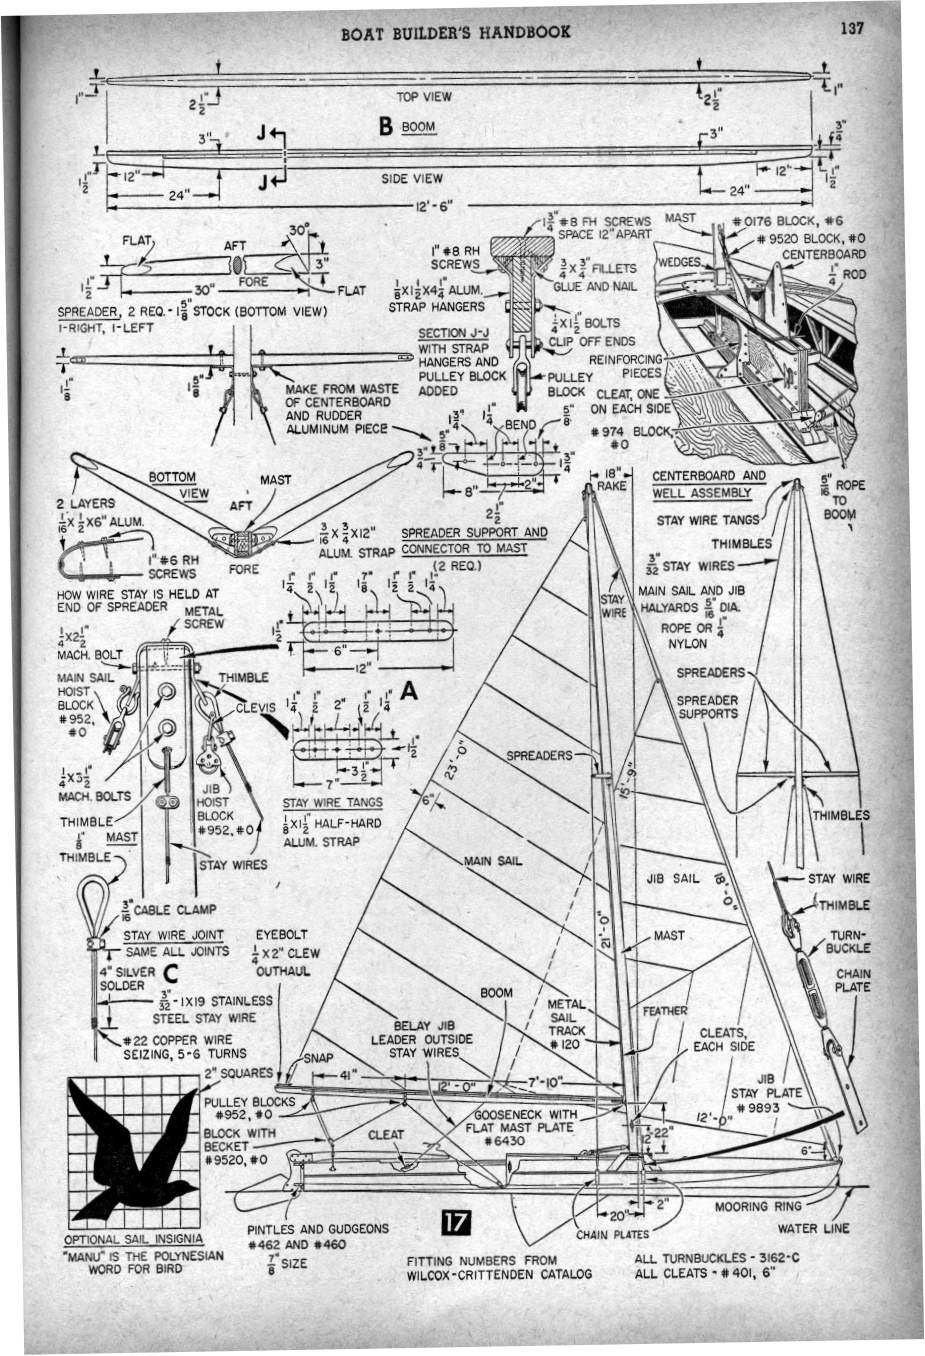 BOAT BUILDER'S HANDBOOK
137
1"
2 1/2"
TOP VIEW
2 1/2"
1"
B BOOM
3"
J
3"
3/4"
1 1/2"
12"
24"
J
SIDE VIEW
12"
24"
1 1/2"
12'-6"
FLAT
AFT
30°
3"
FORE
1 1/2"
30"
FLAT
SPREADER, 2 REQ.- 1 5/8" STOCK (BOTTOM VIEW)
1-RIGHT, 1-LEFT
1 3/4" #8 FH SCREWS
SPACE 12" APART
1" #8 RH
SCREWS
3/4" X 3/4" FILLETS
GLUE AND NAIL
1/8 X 1 1/2 X 4 1/4" ALUM.
STRAP HANGERS
1/4 X 1 1/2" BOLTS
CLIP OFF ENDS
SECTION J-J
WITH STRAP
HANGERS AND
PULLEY BLOCK
ADDED
PULLEY
BLOCK
MAST
#0176 BLOCK, #6
#9520 BLOCK, #0
CENTERBOARD
WEDGES
1/4" ROD
REINFORCING
PIECES
CLEAT, ONE
ON EACH SIDE
#974 BLOCK,
#0
CENTERBOARD AND
WELL ASSEMBLY
5/16" ROPE
TO
BOOM
1 1/8"
1 5/8"
MAKE FROM WASTE
OF CENTERBOARD
AND RUDDER
ALUMINUM PIECE
1 3/4"
1 1/4"
BEND
5/8"
5/8"
3/4"
1 3/4"
8"
2"
2 1/2"
SPREADER SUPPORT AND
CONNECTOR TO MAST
(2 REQ.)
BOTTOM
VIEW
MAST
AFT
FORE
2 LAYERS
1/16 X 1/2 X 6" ALUM.
1" #6 RH
SCREWS
3/16 X 3/4 X 12"
ALUM. STRAP
HOW WIRE STAY IS HELD AT
END OF SPREADER
METAL
SCREW
1/4 X 2 1/2"
MACH. BOLT
MAIN SAIL
HOIST
BLOCK
#952,
#0
THIMBLE
CLEVIS
1/4 X 3 1/2"
MACH. BOLTS
THIMBLE
MAST
JIB
HOIST
BLOCK
#952, #0
STAY WIRES
1 1/4" 1/2" 1 1/2" 1 7/8" 1 1/2" 1/2" 1 1/4"
1 1/2"
6"
12"
A
1 1/4" 1/2" 2" 1/2" 1 1/4"
1 1/2"
3 1/2"
7"
STAY WIRE TANGS
1/8 X 1 1/2" HALF-HARD
ALUM. STRAP
1/8"
THIMBLE
3/16" CABLE CLAMP
STAY WIRE JOINT
SAME ALL JOINTS
4" SILVER
SOLDER
C
3/32"-1X19 STAINLESS
STEEL STAY WIRE
#22 COPPER WIRE
SEIZING, 5-6 TURNS
18"
RAKE
STAY WIRE TANGS
THIMBLES
3/32" STAY WIRES
MAIN SAIL AND JIB
HALYARDS 5/16" DIA.
ROPE OR 1/4"
NYLON
STAY
WIRE
SPREADERS
SPREADER
SUPPORTS
THIMBLES
23'-0"
6"
SPREADERS
15'-9"
MAIN SAIL
JIB SAIL
18'-0"
21'-0"
MAST
STAY WIRE
THIMBLE
TURN-
BUCKLE
CHAIN
PLATE
EYEBOLT
1/4 X 2" CLEW
OUTHAUL
BOOM
METAL
SAIL
TRACK
#120
FEATHER
CLEATS,
EACH SIDE
BELAY JIB
LEADER OUTSIDE
STAY WIRES
SNAP
41"
12'-0"
7'-10"
JIB
STAY PLATE
#9893
2" SQUARES
PULLEY BLOCKS
#952, #0
GOOSENECK WITH
FLAT MAST PLATE
#6430
12'-0"
22"
12"
6"
BLOCK WITH
BECKET
#9520, #0
CLEAT
2"
20"
CHAIN PLATES
MOORING RING
WATER LINE
17
OPTIONAL SAIL INSIGNIA
"MANU" IS THE POLYNESIAN
WORD FOR BIRD
PINTLES AND GUDGEONS
#462 AND #460
7/8" SIZE
FITTING NUMBERS FROM
WILCOX-CRITTENDEN CATALOG
ALL TURNBUCKLES - 3162-C
ALL CLEATS - #401, 6"